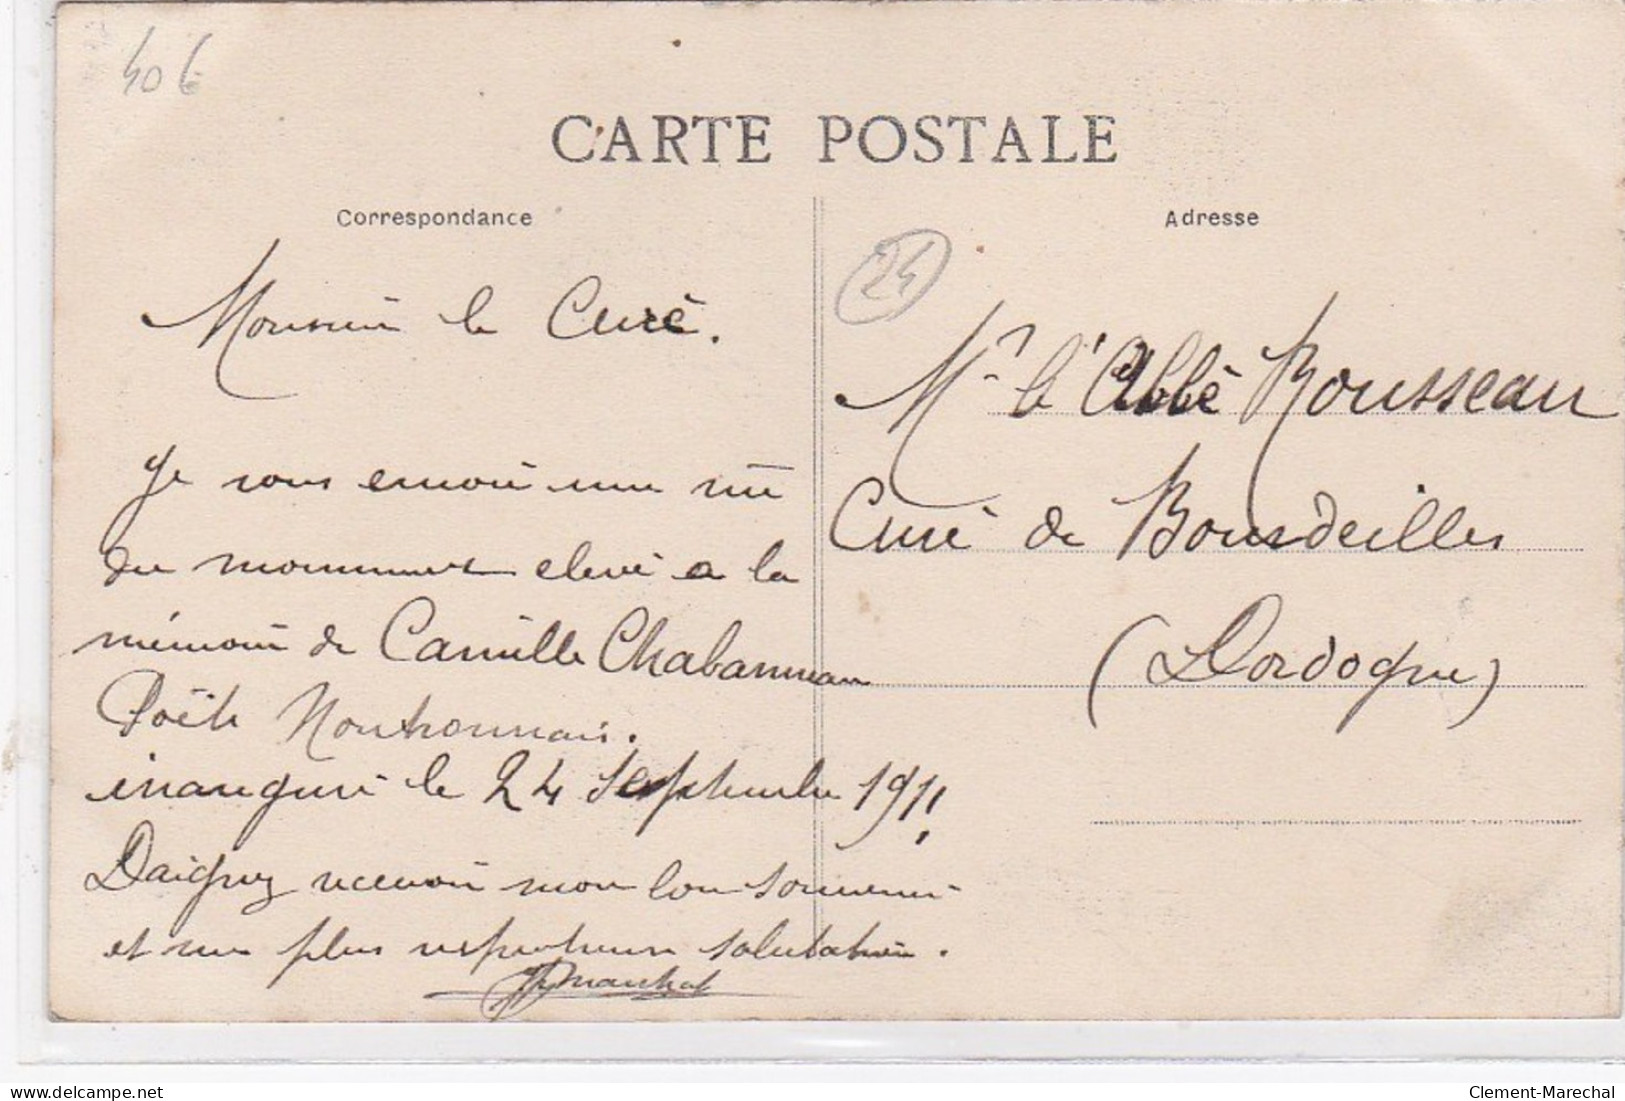 40 €
CARTE POSTALE
Correspondance
Adresse
24
Monsieur le Curé.
Je vous envoie une vue
du monument elevé a la
mémoire de Camille Chabanneau
Poëte Nontronnais.
inauguré le 24 septembre 1911.
Daignez recevoir mon bon souvenir
et mes plus respectueuses salutations.
Mr l'Abbé Rousseau
Curé de Bourdeilles
(Dordogne)
www.delcampe.net
Clement-Marechal